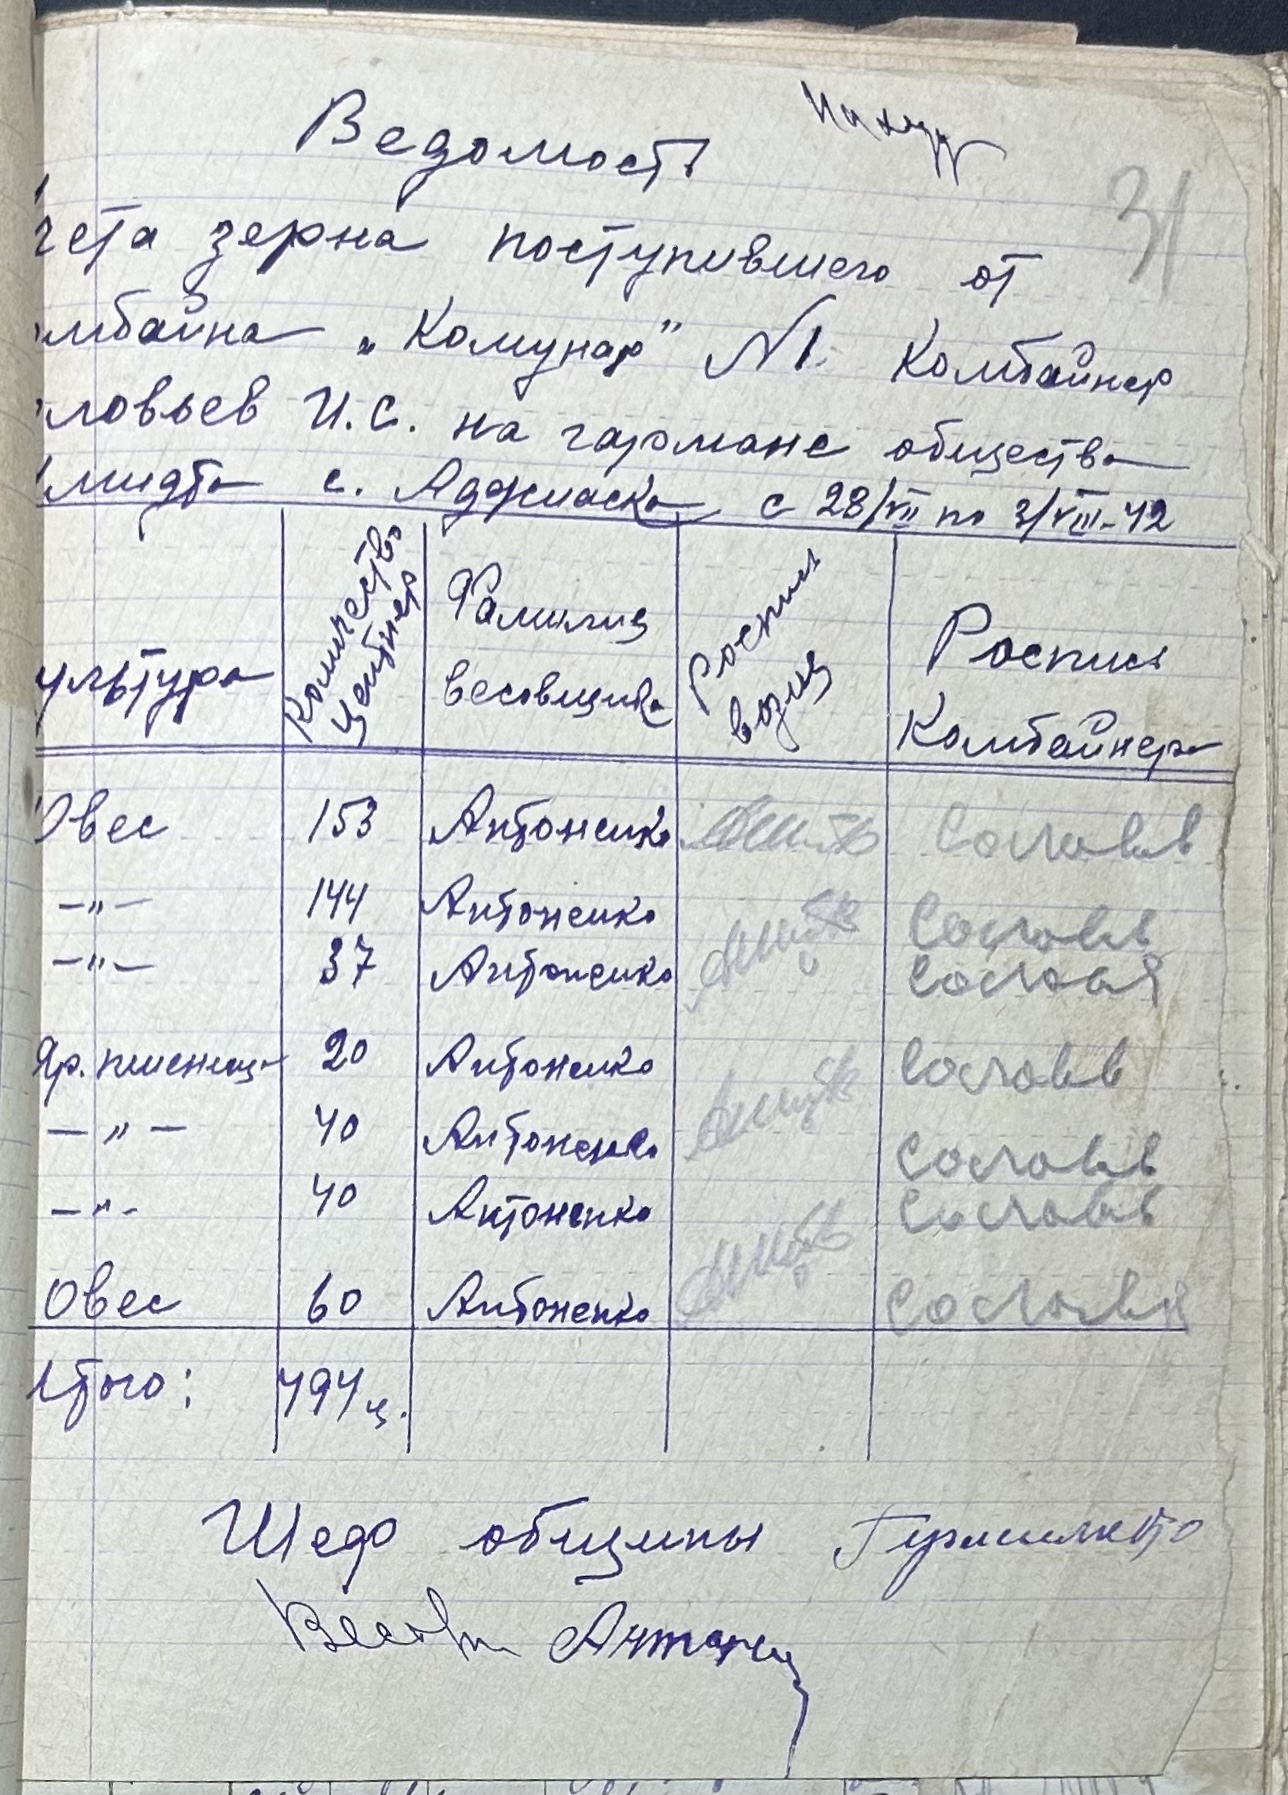 Ведомость
31
чета зерна поступившего от
омбайна „Комунар" N1. Комбайнер
оловьев И.С. на гармане общества
Шмидта с. Аджиаска с 28/VII по 3/VIII-42
ультура Количество Центнер Фамилия весовщика Роспись возчц Роспись Комбайнера
Овес 153 Антоненко Соловьев
—"— 144 Антоненко Соловьев
—"— 37 Антоненко Соловьев
Яр. пшеница 20 Антоненко Соловьев
— " — 40 Антоненко Соловьев
—"- 40 Антоненко Соловьев
Овес 60 Антоненко Соловьев
Итого: 494 ц.
Шеф общины
Весов Антонен